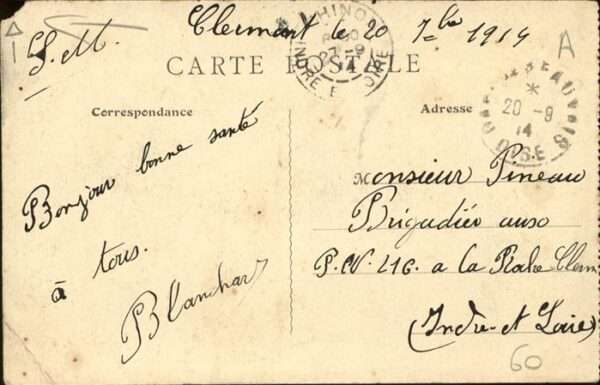 Clermont le 20 7bre 1914
S.M.
CHINON
27-9
14
INDRE ET LOIRE
A
CARTE POSTALE
Correspondance
Adresse
BEAUVAIS
20-9
14
OISE
Bonjour bonne santé
à tous.
Blanchard
Monsieur Pineau
Brigadier auxo
P.N. 116. a la Roche Clerm
(Indre-et Loire)
60